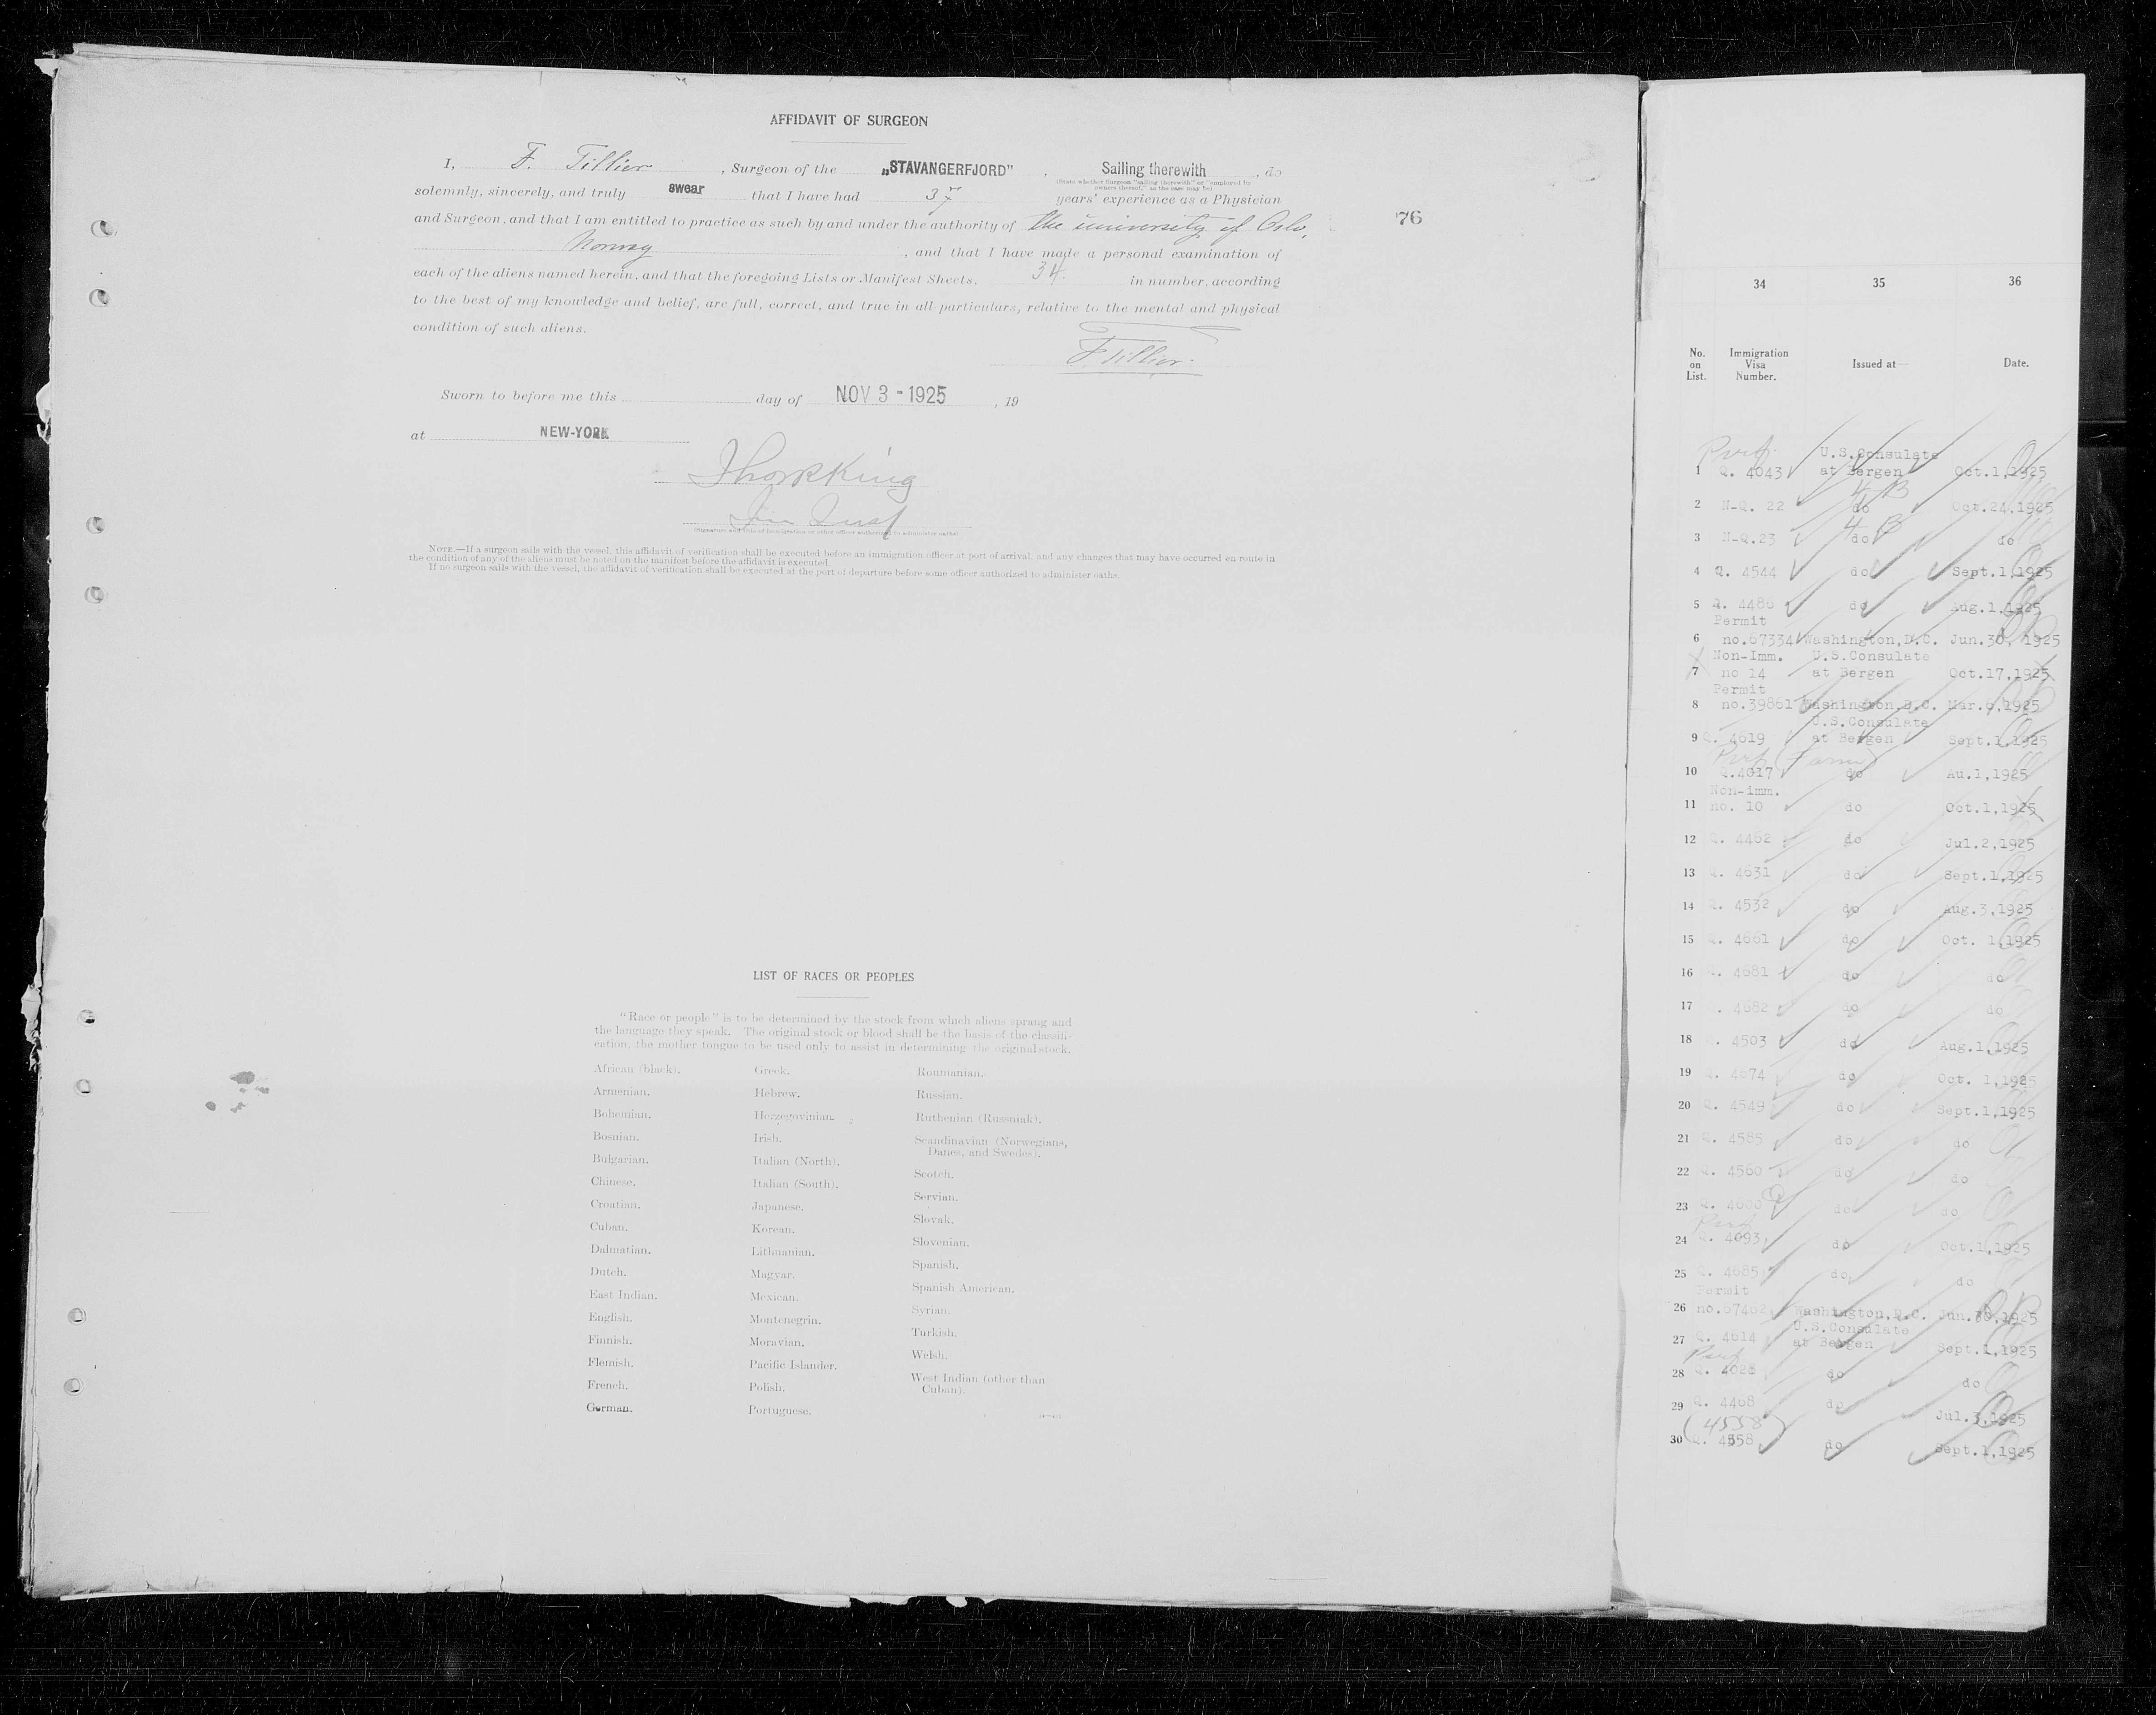 AFFIDAVIT OF SURGEON
I, F. Tillier, Surgeon of the „STAVANGERFJORD", Sailing therewith, do
(State whether Surgeon "sailing therewith" or "employed by
owners thereof," as the case may be)
solemnly, sincerely, and truly swear that I have had 37 years' experience as a Physician
and Surgeon, and that I am entitled to practice as such by and under the authority of the university of Oslo,
Norway, and that I have made a personal examination of
each of the aliens named herein, and that the foregoing Lists or Manifest Sheets, 34 in number, according
to the best of my knowledge and belief, are full, correct, and true in all particulars, relative to the mental and physical
condition of such aliens.
F. Tillier.
Sworn to before me this day of NOV 3 - 1925, 19
at NEW-YORK
(Signature and title of immigration or other officer authorized to administer oaths)
NOTE.—If a surgeon sails with the vessel, this affidavit of verification shall be executed before an immigration officer at port of arrival, and any changes that may have occurred en route in
the condition of any of the aliens must be noted on the manifest before the affidavit is executed.
If no surgeon sails with the vessel, the affidavit of verification shall be executed at the port of departure before some officer authorized to administer oaths.
76
LIST OF RACES OR PEOPLES
"Race or people" is to be determined by the stock from which aliens sprang and
the language they speak. The original stock or blood shall be the basis of the classifi-
cation, the mother tongue to be used only to assist in determining the original stock.
African (black).
Armenian.
Bohemian.
Bosnian.
Bulgarian.
Chinese.
Croatian.
Cuban.
Dalmatian.
Dutch.
East Indian.
English.
Finnish.
Flemish.
French.
German.
Greek.
Hebrew.
Herzegovinian.
Irish.
Italian (North).
Italian (South).
Japanese.
Korean.
Lithuanian.
Magyar.
Mexican.
Montenegrin.
Moravian.
Pacific Islander.
Polish.
Portuguese.
Roumanian.
Russian.
Ruthenian (Russniak).
Scandinavian (Norwegians,
Danes, and Swedes).
Scotch.
Servian.
Slovak.
Slovenian.
Spanish.
Spanish American.
Syrian.
Turkish.
Welsh.
West Indian (other than
Cuban).
34 35 36
No. on List. Immigration Visa Number. Issued at— Date.
U.S.Consulate
1 Q. 4043 at Bergen Oct.1,1925
4 B
2 N-Q. 22 do Oct.24,1925
4 B
3 N-Q.23 do do
4 Q. 4544 do Sept.1,1925
5 Q. 4486 do Aug.1,1925
Permit
6 no.67334 Washington,D.C. Jun.30, 1925
Non-Imm. U.S.Consulate
7 no 14 at Bergen Oct.17,1925
Permit
8 no.39861 Washington,D.C. Mar.6,1925
U.S.Consulate
9 Q. 4619 at Bergen Sept.1,1925
10 Q.4017 do Au.1,1925
Non-imm.
11 no. 10 do Oct.1,1925
12 Q. 4462 do Jul.2,1925
13 Q. 4631 do Sept.1,1925
14 Q. 4532 do Aug.3,1925
15 Q. 4661 do Oct. 1,1925
16 Q. 4681 do do
17 . 4682 do do
18 . 4503 do Aug.1,1925
19 Q. 4674 do Oct. 1,1925
20 Q. 4549 do Sept.1,1925
21 Q. 4585 do do
22 Q. 4560 do do
23 Q. do do
24 Q. 4093 do Oct.1,1925
25 Q. 4685 do do
Permit
26 no.67462 Washington,D.C. Jun.30,1925
U.S.Consulate
27 Q. 4614 at Bergen Sept.1,1925
28 Q. 4028 do do
29 Q. 4468 do Jul.3,1925
(4558)
30 Q. 4558 do Sept.1,1925